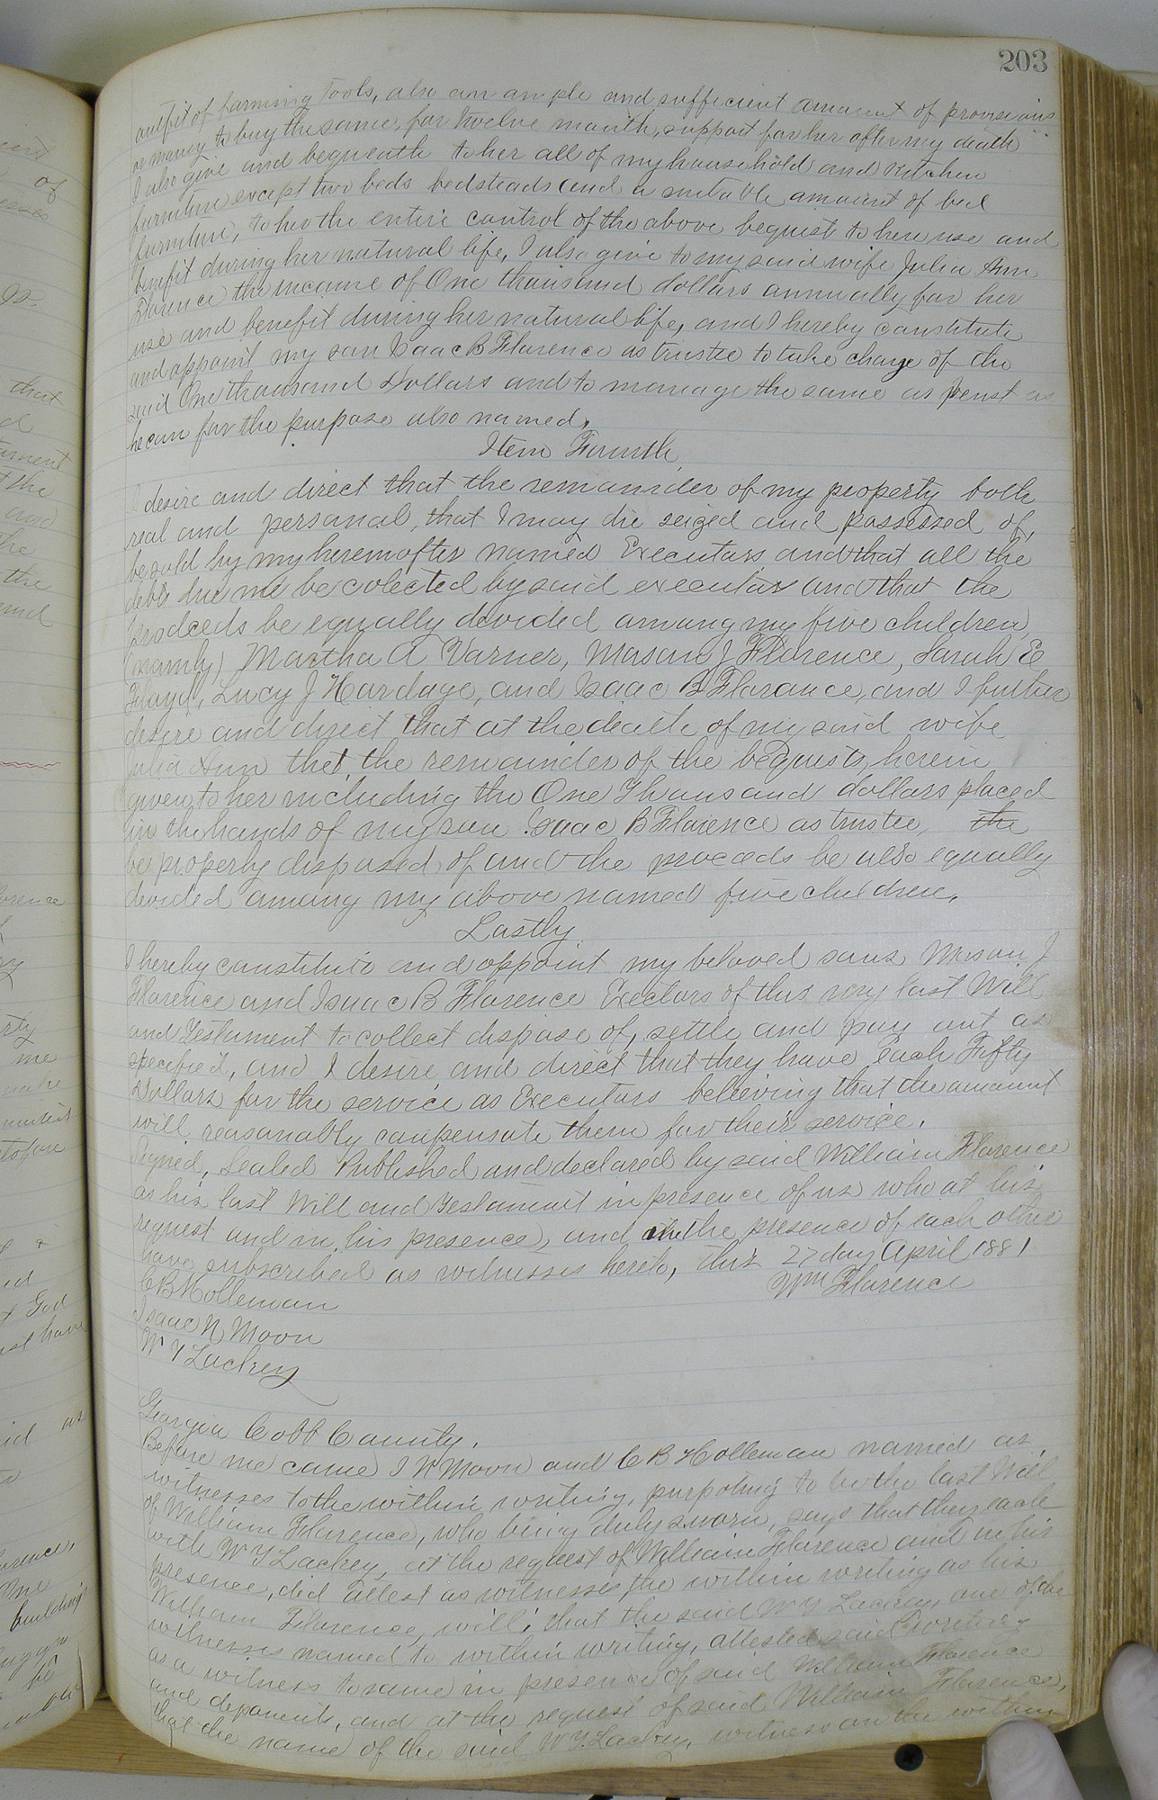 203
outfit of farming Tools, also an ample and sufficient amount of provisions
or money to buy the same, for twelve month, support for her after my death
I also give and bequeath to her all of my household and kitchen
furniture except two beds bedsteads and a suitable amount of bed
furniture, to her the entire control of the above bequist to here use and
benifit during her natural life, I also give to my said wife Julia Ann
Florence the income of One thousand dollars annually for her
use and benefit during her natural life, and I hereby constitute
and appoint my son Isaac B Florence as trustee to take charge of the
said One thousand Dollars and to manage the same as best as
he can for the purpose also named,
Item Fourth
I desire and direct that the remainder of my property both
real and personal, that I may die seized and possessed of,
be sold by my hereinafter named Executors and that all the
debts due me be colected by said executor and that the
prodceds be equally devided among my five children
(namly) Martha A Varner, Mason J Florence, Sarah E
Floyd, Lucy J Hardage, and Isaac B Florance, and I further
desire and direct that at the death of my said wife
Julia Ann thet the remainder of the bequists herein
given to her including the One Thousand dollars placed
in the hands of my son Isaac B Florence as trustee the
be properly disposed of and the proceds be also equally
devided among my above named five children,
Lastly
I hereby constitute and appoint my beloved sons Mason J
Florence and Isaac B Florence Exectors of this my last Will
and Testament to collect dispose of, settle and pay out as
specified, and I desire and direct that they have each Fifty
Dollars for the service as Executors believing that the amount
will reasonably conpensate them for their service.
Signed, Sealed Published and declared by said William Florence
as his last Will and Testament in presence of us who at his
request and in his presence, and in the presence of each other
have subscribed as witnesses hereto, this 27 day April 1881
C B Holleman Wm Florence
Isaac N Moon
W Y Lackey
Georgia Cobb County.
Before me came I N Moon and C B Holleman named as
witnesses to the within writing, purpoting to be the last Will
of William Florence, who being duly sworn, says that they each
with W Y Lackey, at the request of William Florence and in his
presence, did attest as witnesses, the within writing as his
William Florence, will; that the said W Y Lackey, one of the
witnesses named to within writing, attested said writing
as a witness to same in presence of said William Florence
and deponents, and at the request of said William Florence,
that the name of the said W Y. Lackey, witness on the within